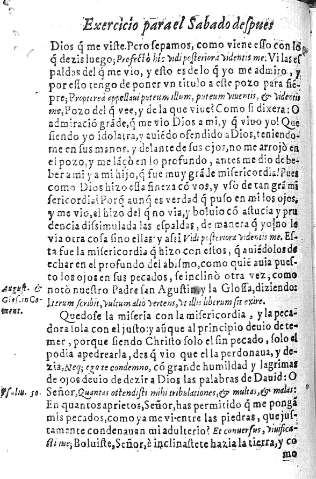 Exercicio para el Sabado despues
Dios q̃ me viste. Pero sepamos, como viene esso con lo
q̃ dezis luego; Profectò hìc vidi posteriora videntis me. Vi las es
paldas del q̃ me vio, y esto es de lo q̃ yo me admiro, y
por esso tengo de poner vn titulo a este pozo para siẽ-
pre; Propterea appellaui puteum illum, puteum viuentis, & videntis
me, Pozo del q̃ vee, y de la que viue? Como si dixera: O
admiraciõ grãde, q̃ me vio Dios a mi, y q̃ viuo yo! Que
siendo yo idolatra, y auiẽdo ofendido a Dios, teniendo-
me en sus manos, y delante de sus ojos, no me arrojò en
el pozo, y me lãçò en lo profundo, antes me dio de be-
ber a mi y a mi hijo, q̃ fue muy grãde misericordia! Pues
como Dios hizo essa fineza cõ vos, y vsò de tan grã mi
sericordia? Porq̃ aunq̃ es verdad q̃ puso en mi los ojos,
y me vio, el hizo del q̃ no via, y boluio cõ astucia y pru
dencia dissimulada las espaldas, de manera q̃ yo no le
via otra cosa sino ellas: y assi Vidi posteriora videntis me. Es
ta fue la misericordia q̃ hizo con estos, q̃ auiẽdolos de
echar en el profundo del abismo, como quiẽ auia pues-
to los ojos en sus pecados, se inclinò otra vez, como
August. & notò nuestro Padre san Agustin, y la Glossa, diziendo:
Glos. in Co Iterum scribit, vultum aliò vertens, vt illis liberum sit exire.
ment.
Quedose la miseria con la misericordia, y la peca-
dora sola con el justo: y aũque al principio deuio de te-
mer, porque siendo Christo solo el sin pecado, solo el
podia apedrearla, des q̃ vio que el la perdonaua, y de-
zia, Neq; ego te condemno, cõ grande humildad y lagrimas
de ojos deuio de dezir a Dios las palabras de Dauid: O
Psalm. 50. Señor, Quantas ostendisti mihi tribulationes, & multas, & malas:
En quantos aprietos, Señor, has permitido q̃ me pongã
mis pecados, como ya me vi entre las piedras, que jus-
tamente condenauan mi adulterio? Et conuersus, viuifica-
sti me, Boluiste, Señor, è inclinastete hazia la tierra, y co
mo